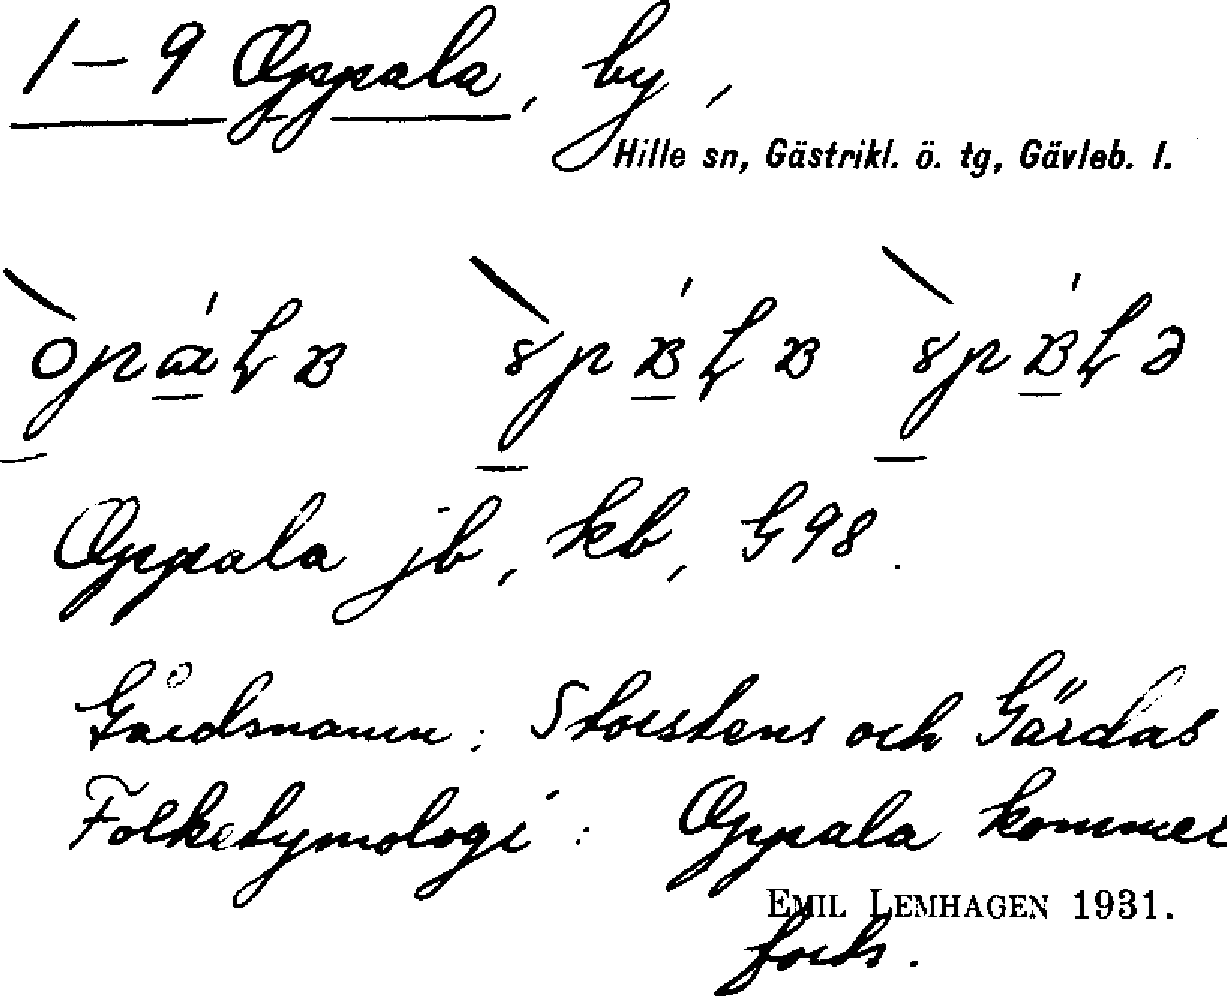 1–9 Oppala, by,
Hille sn, Gästrikl. ö. tg, Gävleb. l.
Oppala jb, kb, G 98.
Gårdsnamn: Storstens och Gärdas
Folketymologi: Oppala kommer
EMIL LEMHAGEN 1931.
forts.